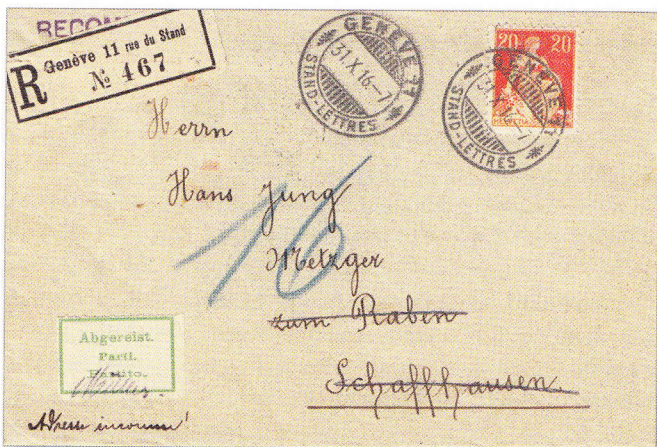 RECOM
Genève 11 rue du Stand
R № 467
GENÈVE 11
31.X.16.-7
STAND-LETTRES
20 20
HELVETIA
GENÈVE 11
STAND-LETTRES
Herrn
Hans Jung
Metzger
zum Raben
Schaffhausen.
16
Abgereist.
Parti.
Partito.
Adresse inconnu!